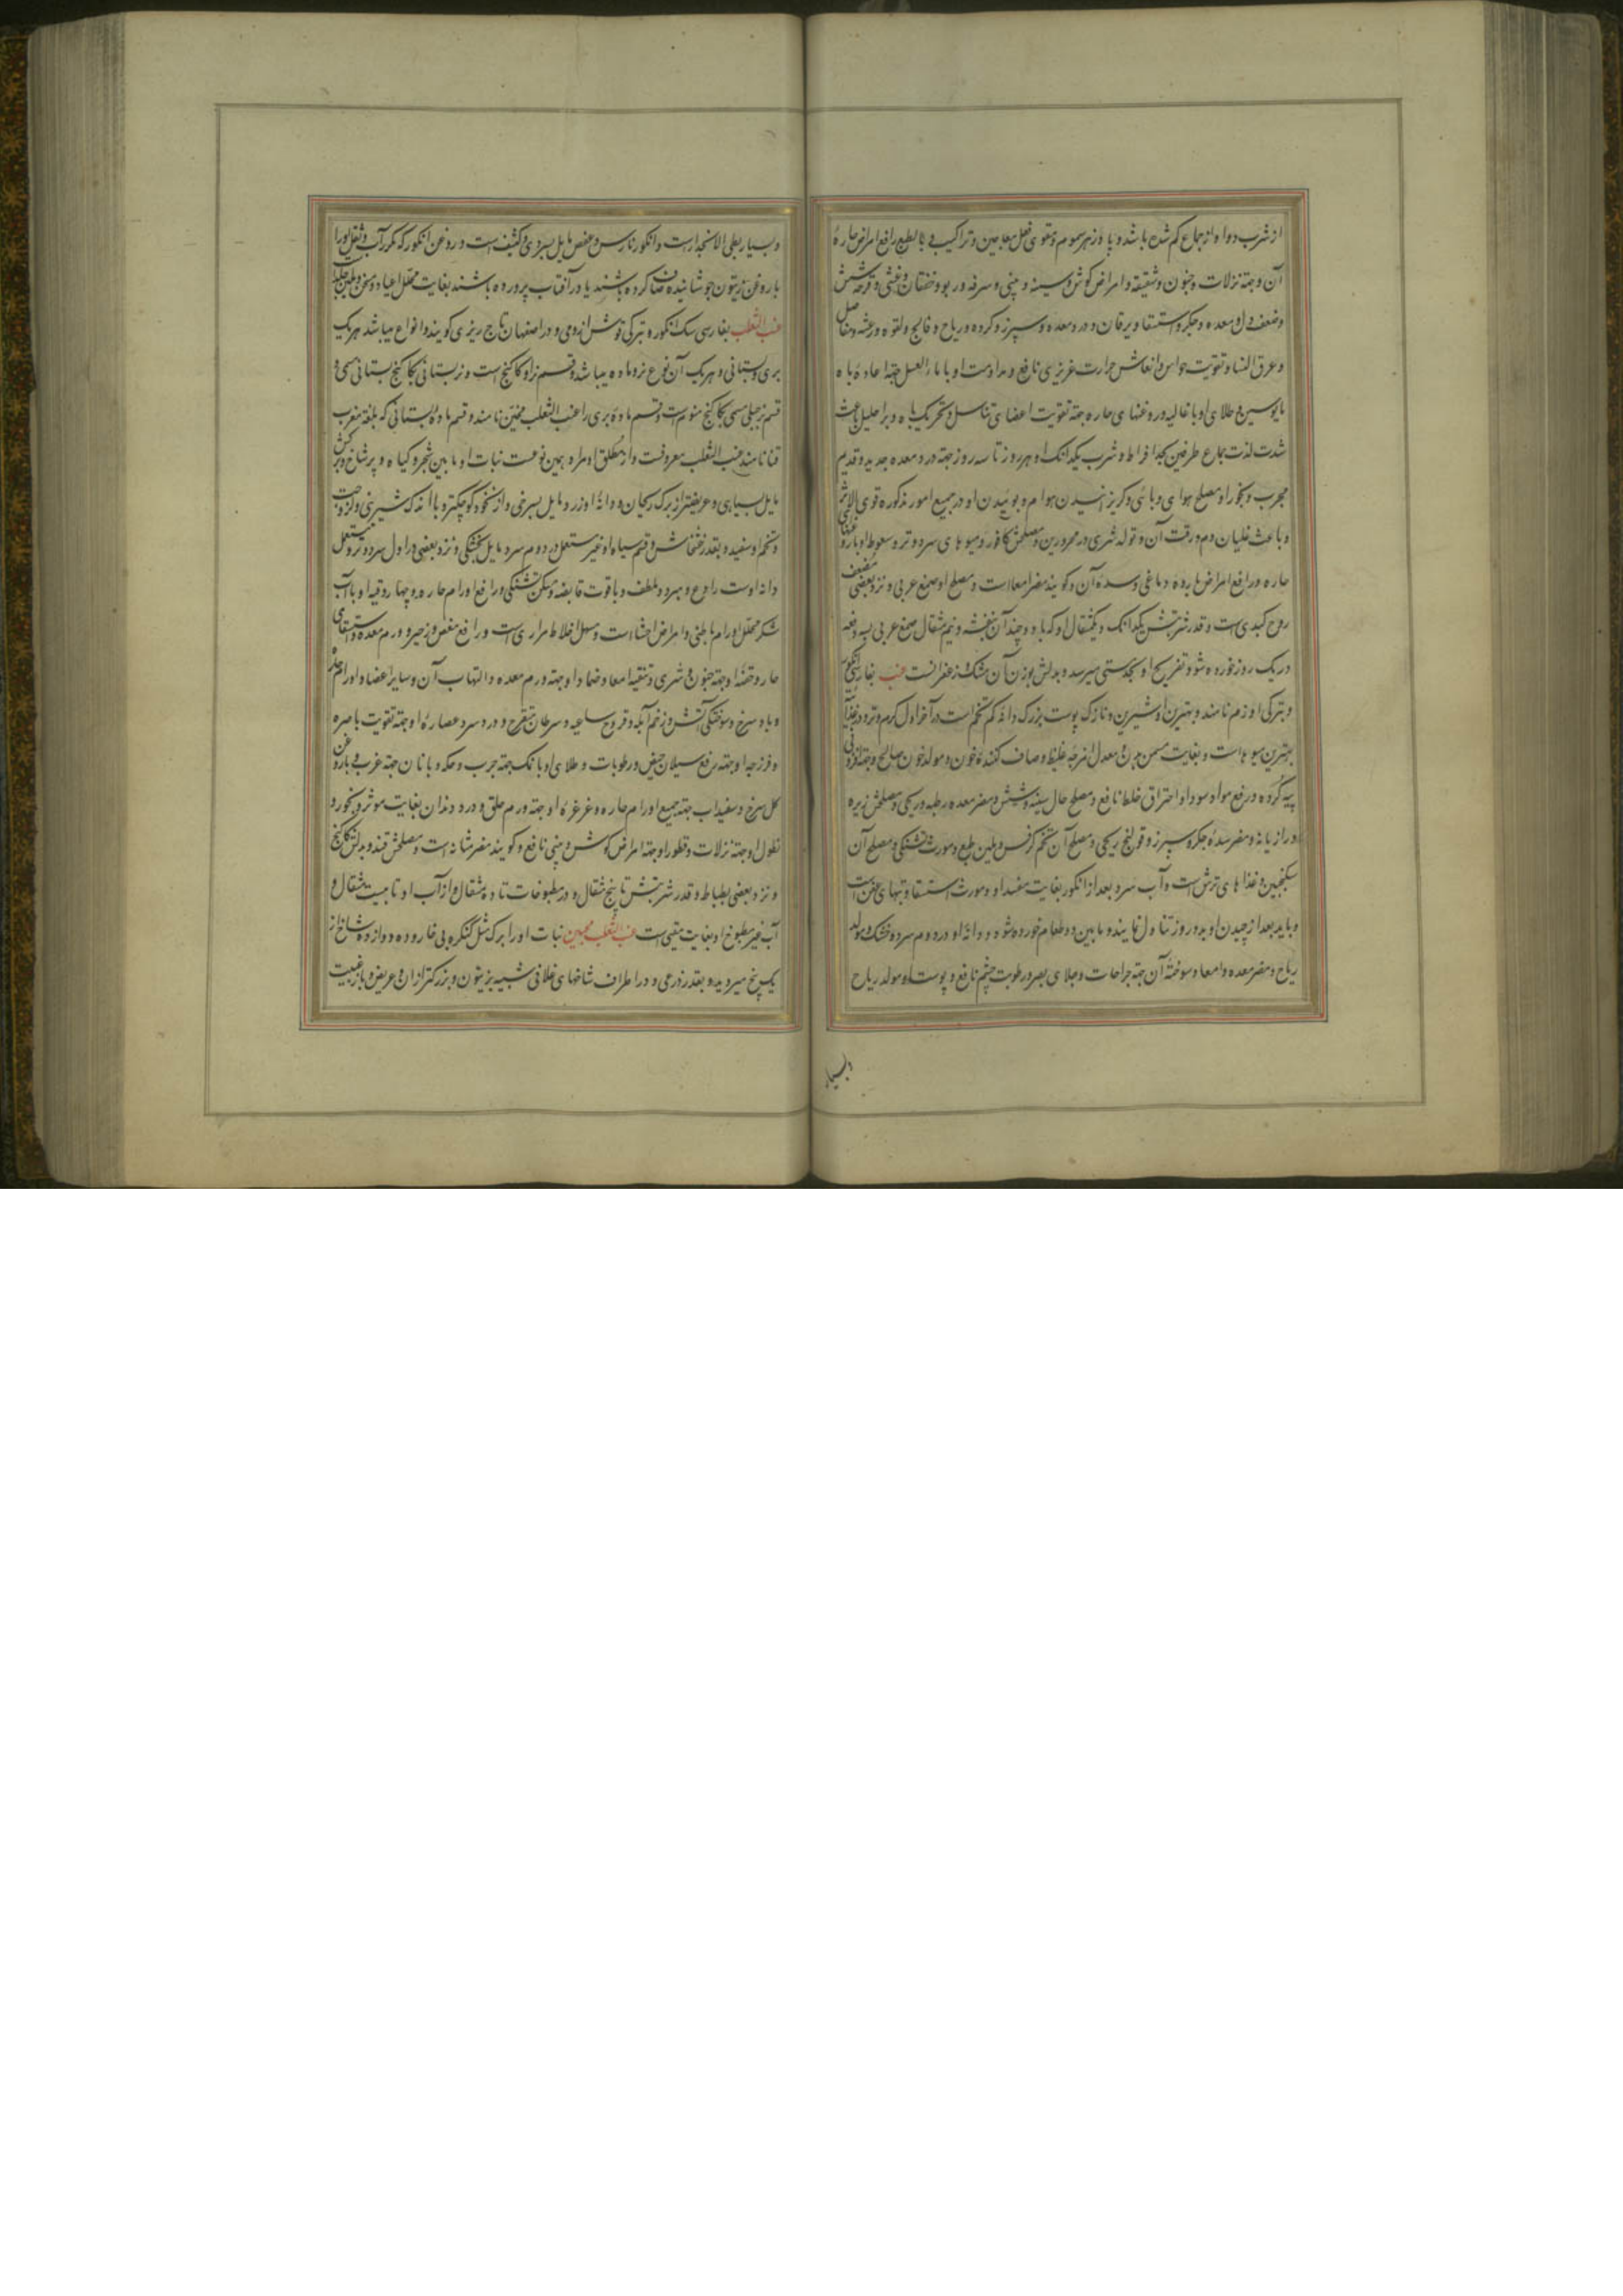 از شرب دوا و از جماع کم شده باشد و پادزهر سموم و مقوی فعل معاجین و تراکیب و بالطبع رافع امراض حاره
آن و جهة نزلات و جنون و شقیقه و امراض کوش و سینه و بینی و سرفه و ربو و خفقان و غشی و قرحه شش
و ضعف دل و معده و جکر و استسقا و یرقان و درد معده و سپرز و کرده و ریاح و فالج و لقوه و رعشه و مفاصل
و عرق النسا و تقویت حواس و انعاش حرارت غریزی نافع و مداومت او با ماء العسل جهة اعاده باه
مایوسین و طلای او با غالیه و روغنهای حاره جهة تقویت اعضای تناسل و تحریک باه و بر احلیل باعث
شدت لذت جماع طرفین بحد افراط و شرب یکدانک او هر روز تا سه روز جهة درد معده جدید و قدیم
مجرب و بخور او مصلح هوای وبائی و کریزانیدن هوام و بوئیدن او در جمیع امور مذکوره قوی الاثر
و باعث غلیان دم و رقت آن و تولد شری در محرورین و مصلحش کافور و میوهای سرد و تر و سعوط او با روغنهای
حاره رافع امراض بارده دماغی و سده آن و کویند مضر امعااست و مصلح او صمغ عربی و نزد بعضی مضعف
روح کبدی است و قدر شربتش یکدانک و یکمثقال او که با دو چندان بنفشه و نیم مثقال صمغ عربی بسه دفعه
در یک روز خورده شود تفریح او بحد مستی میرسد و بدلش بوزن آن مشک و زعفرانست عنب بفارسی انکور
و بترکی اوزم نامند و بهترین او شیرین و نازک پوست بزرک دانه کم تخم است در آخر اول کرم و تر و در غذائیت
بهترین میوهاست و بغایت مسمن بدن و معدل امزجه غلیظ و صاف کننده خون و مولد خون صالح و جهة
پیه کرده و رفع مواد سودا و احتراق خلط نافع و مصلح حال سینه و شش و مضر معده رطبه و ریحی و مصلحش زیره
و رازیانه و مضر سده جکر و سپرز و قولنج ریحی و مصلح آن تخم کرفس و ملین طبع و مورث تشنکی و مصلح آن
سکنجبین و غذاهای ترش است و آب سرد بعد از انکور بغایت مفسد او و مورث استسقا و تبهای عفن است
و باید بعد از چیدن او بدو روز تناول نمایند و مابین دو طعام خورده شود و دانه او در دوم سرد و خشک مولد
ریاح و مضر معده و امعا و سوخته آن جهة جراحات و جلای بصر و رطوبت چشم نافع و پوست او مولد ریاح
وبسیار
و بسیار بطی الانحدار است و انکور نارس و عفص مایل بسردی و کثیف است و روغن انکور که مکرر آب و ثفل او را
با روغن زیتون جوشانیده صاف کرده باشند یا در آفتاب پرورده باشند بغایت محلل اعیا و مسخن و ملین جلد است
عنب الثعلب بفارسی سک انکوره و بترکی قوش ازومی و در اصفهان تاج ریزی کویند و انواع میباشد هر یک
بری و بستانی و هر یک آن نوع نر و ماده میباشد و قسم نر او کاکنج است و نر بستانی بکاکنج بستانی مسمی و
قسم نر جبلی مسمی بکاکنج منوم است و قسم ماده بری را عنب الثعلب مجنن نامند و قسم ماده بستانی که بلغة مغرب
قنا نامند عنب الثعلب معروفست و از مطلق او مراد همین نوعست نبات او مابین شجر و کیاه و پر شاخ و برکش
مایل بسیاهی و عریضتر از برک ریحان و دانه او زرد و مایل بسرخی و از نخود کوچکتر و با اندک شیرینی و لزوجت
و تخم او سفید و بقدر خشخاش و قسم سیاه او غیر مستعمل در دوم سرد مایل بخشکی و نزد بعضی در اول سرد و تر و مستعمل
دانه اوست رادع و مبرد و ملطف و با قوت قابضه و مسکن تشنکی و رافع اورام حاره و چهار وقیه او با آب
شکر محلل اورام باطنی و امراض احشاء است و مسهل اخلاط مراری است و رافع مغص و زحیر و ورم معده و استسقای
حار و حقنه او جهة جنون و شری و تنقیه امعا و ضماد او جهة ورم معده و التهاب آن و سایر اعضا و اورام حاره
و باد سرخ و سوختکی آتش و زخم آبله و قروح ساعیه و سرطان متقرح و درد سر و عصاره او جهة تقویت باصره
و فرزجه او جهة رفع سیلان حیض و رطوبات و طلای او با نمک جهة جرب و حکه و با نان جهة غرب و با روغن
کل سرخ و سفیداب جهة جمیع اورام حاره و غرغره او جهة ورم حلق و درد دندان بغایت مؤثر و بخور و
نطول او جهة نزلات و قطور او جهة امراض کوش و بینی نافع و کویند مضر مثانه است و مصلحش قند و بدلش کاکنج
و نزد بعضی بطباط و قدر شربتش تا پنج مثقال و در مطبوخات تا ده مثقال و از آب او تا بیست مثقال و
آب غیر مطبوخ او بغایت مقیی است عنب الثعلب مجنن نبات او را برک مثل کنکره بی خار و ده دوازده شاخ از
یک بیخ میروید و بقدر ذرعی و در اطراف شاخهای غلافی شبیه بزیتون و بزرکتر از ان و عریض و با زغبیت